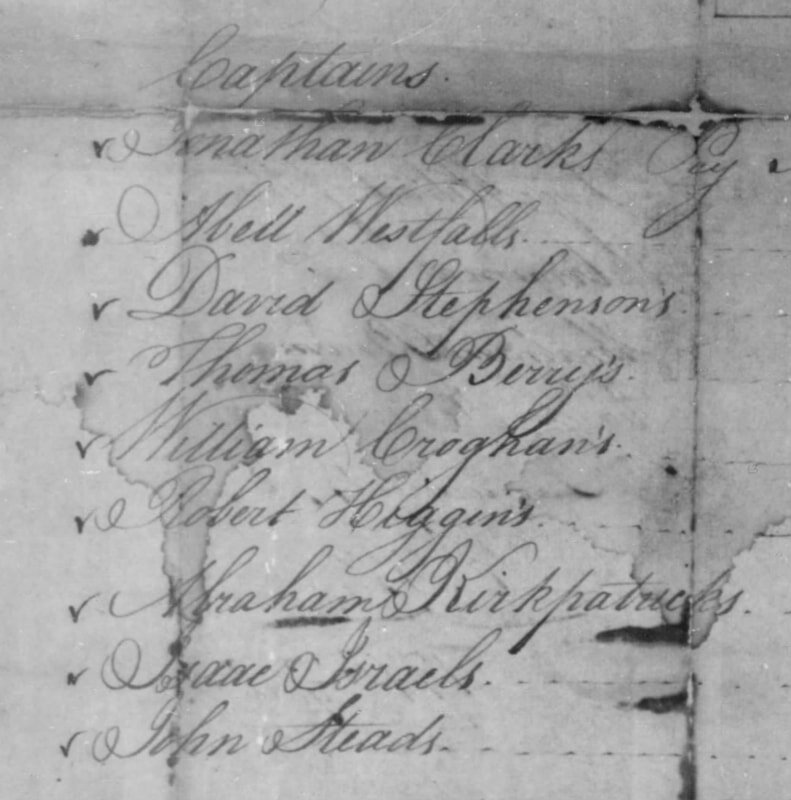 Captains.
Jonathan Clarks Coy
Abell Westfalls.
David Stephenson's
Thomas Berry's.
William Croghan's.
Robert Higgin's.
Abraham Kirkpatricks.
Isaac Israels.
John Steads.